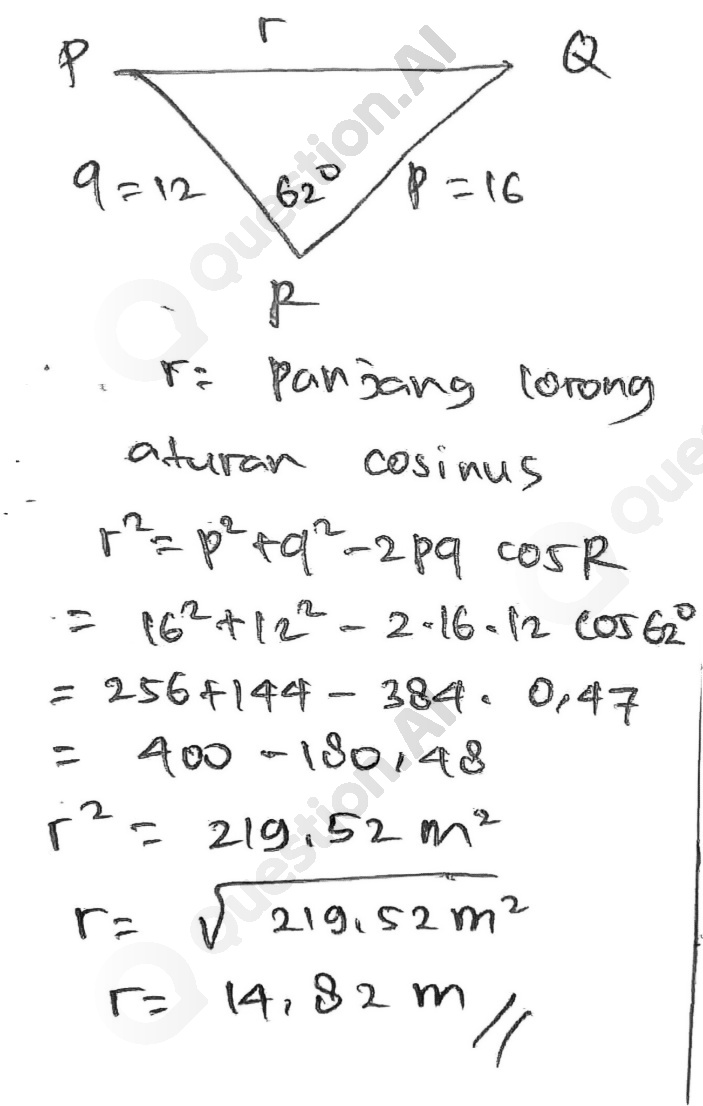 r
P Q
q = 12 62° p = 16
R
r = panjang lorong
aturan cosinus
r² = p² + q² - 2pq cos R
= 16² + 12² - 2·16·12 cos 62°
= 256 + 144 - 384 . 0,47
= 400 - 180,48
r² = 219,52 m²
r = √219,52 m²
r = 14,82 m //
Question.AI
Que
Question.AI